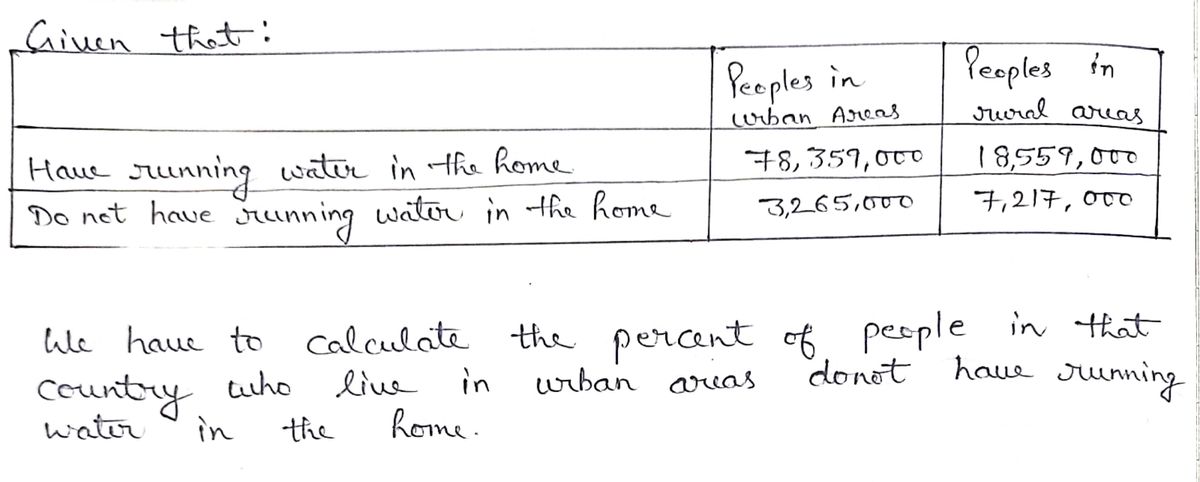 Given that:
Peoples in urban Areas
Peoples in rural areas
Have running water in the home 78,359,000 18,559,000
Do not have running water in the home 3,265,000 7,217,000
We have to calculate the percent of people in that
country who live in urban areas donot have running
water in the home.